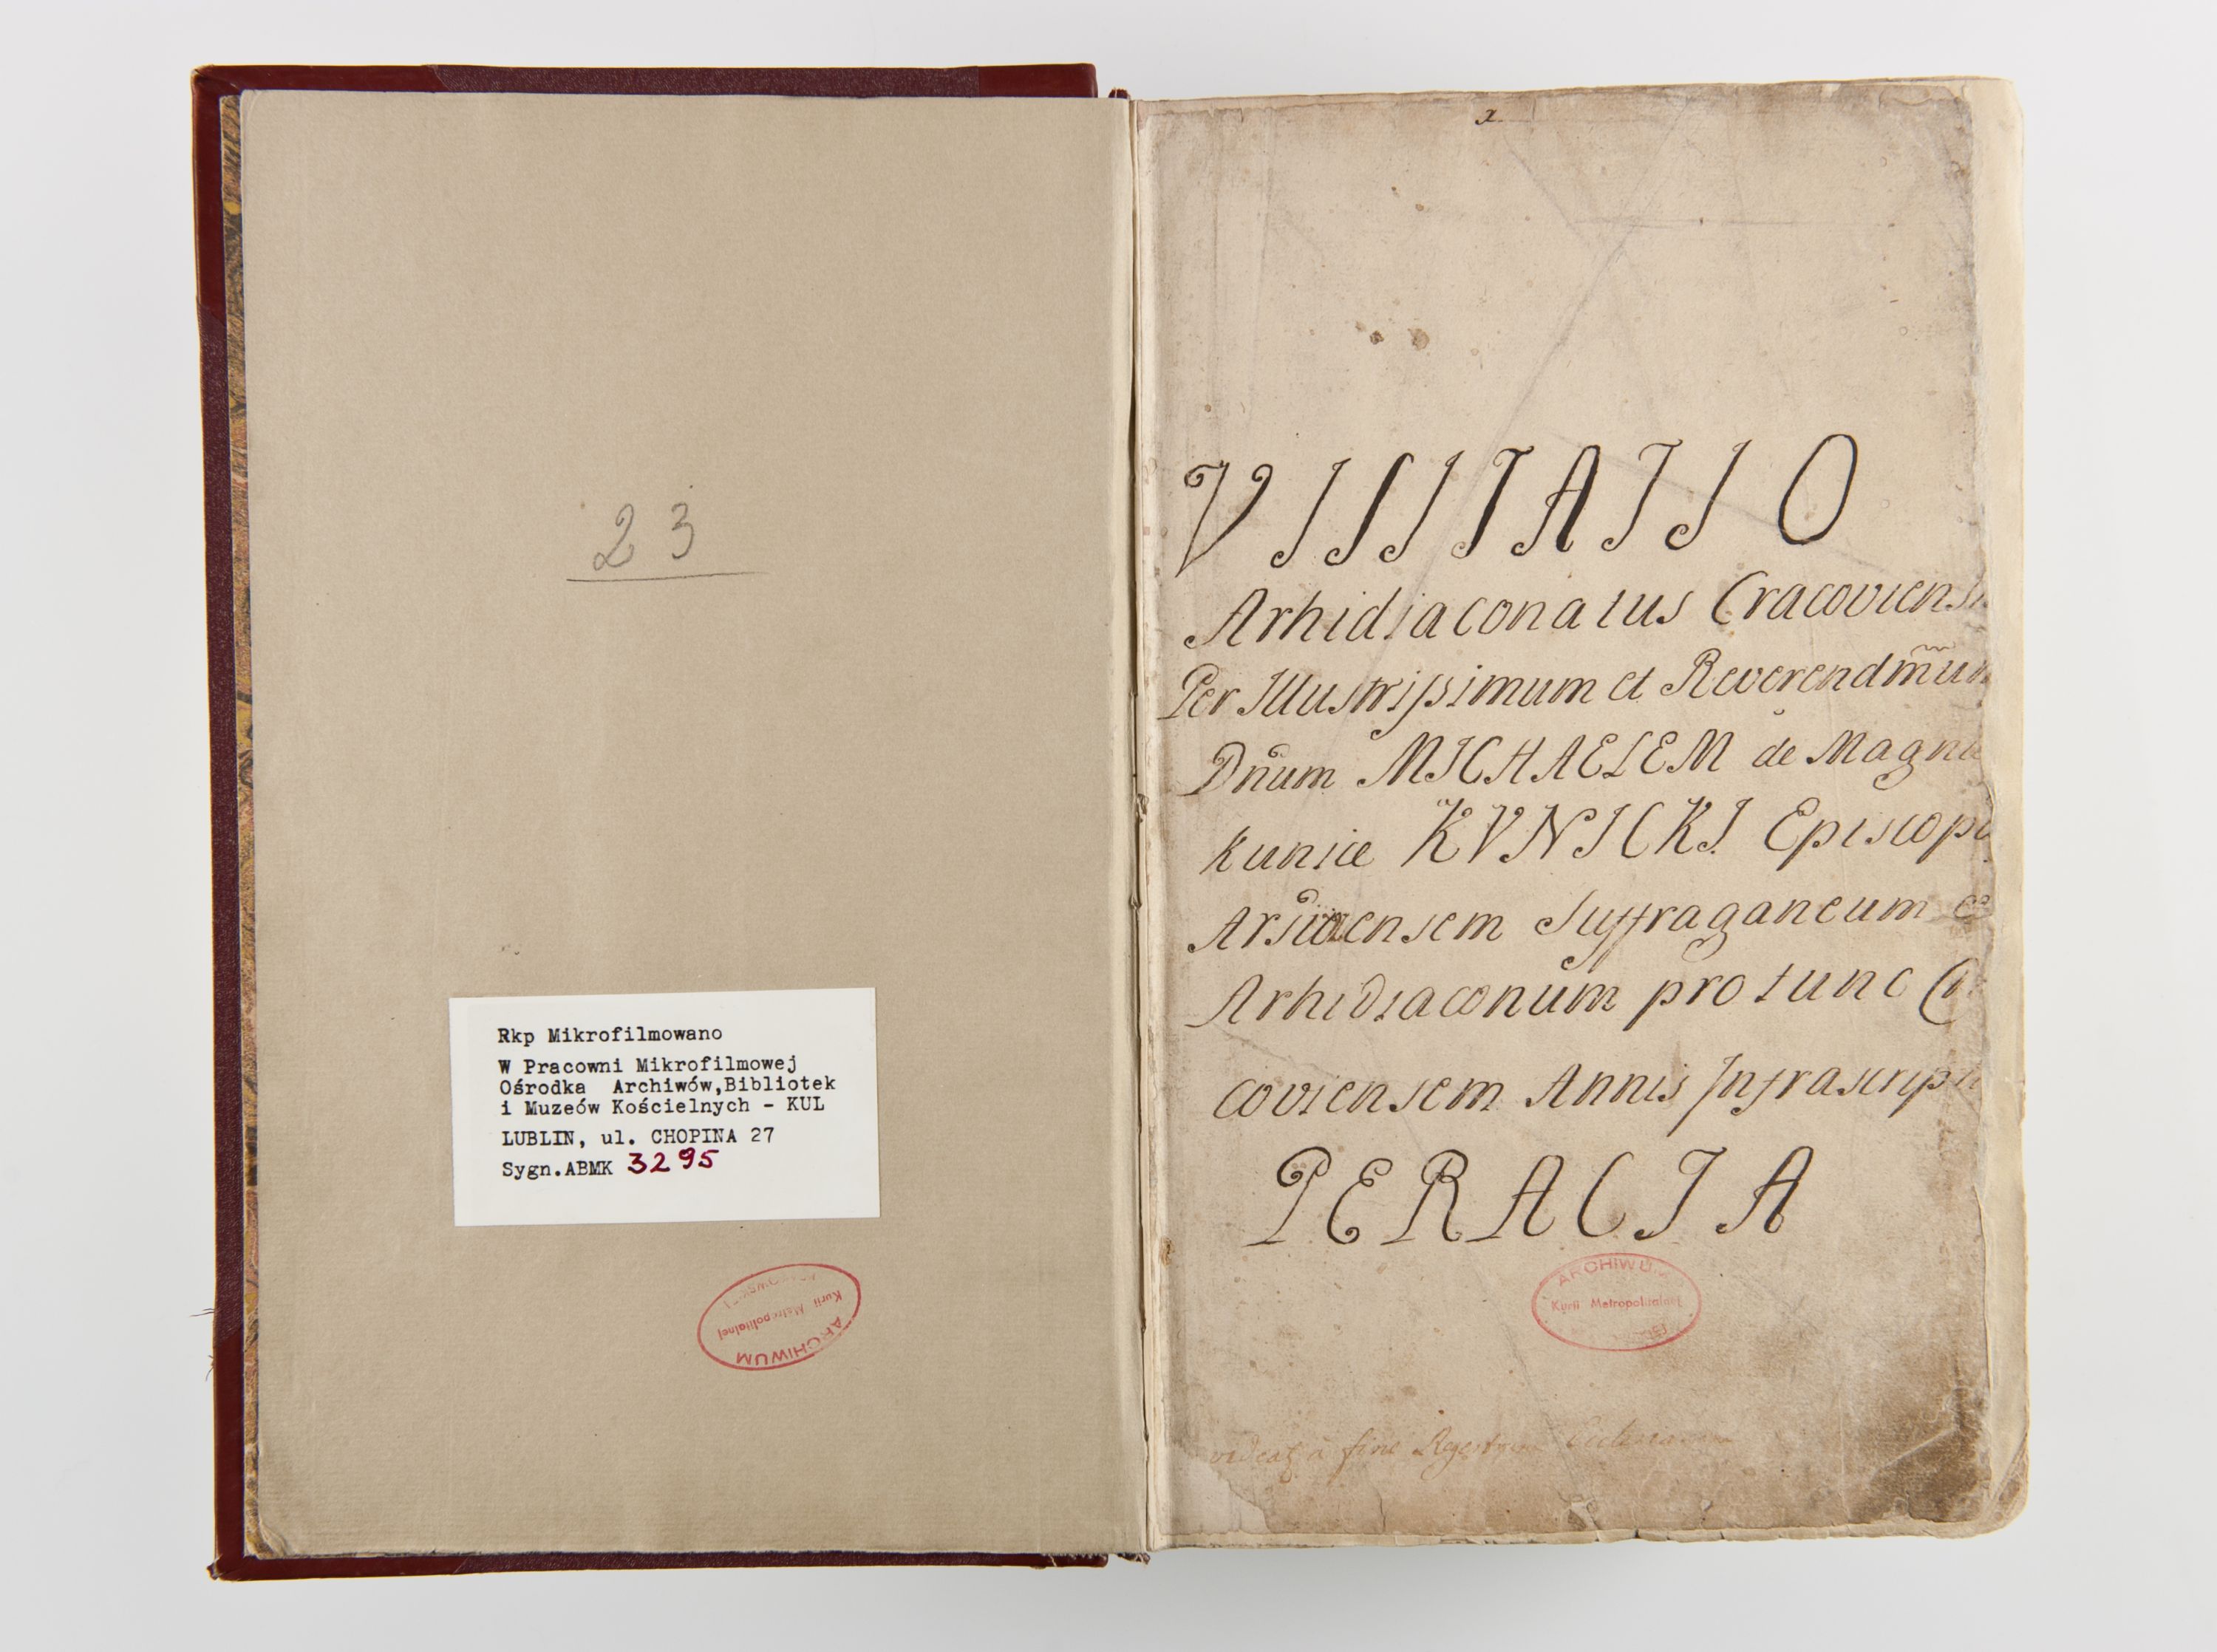 23
Rkp Mikrofilmowano
W Pracowni Mikrofilmowej
Ośrodka Archiwów,Bibliotek
i Muzeów Kościelnych - KUL
LUBLIN, ul. CHOPINA 27
Sygn.ABMK 3295
ARCHIWUM
Kurii Metropolitalnej
VISITATIO
Arhidiaconatus Cracoviensi
Per Illustrissimum et Reverendm̃um
Dn̄um MICHAELEM de Magna
Kunice KVNICKI Episcopu
Arsiviensem Suffraganeum
Arhidiaconum pro tunc Cr
coviensem Annis Infrascrip
PERACTA
ARCHIWUM
Kurii Metropolitalnej
a fine Regestrum Ecclesiarum